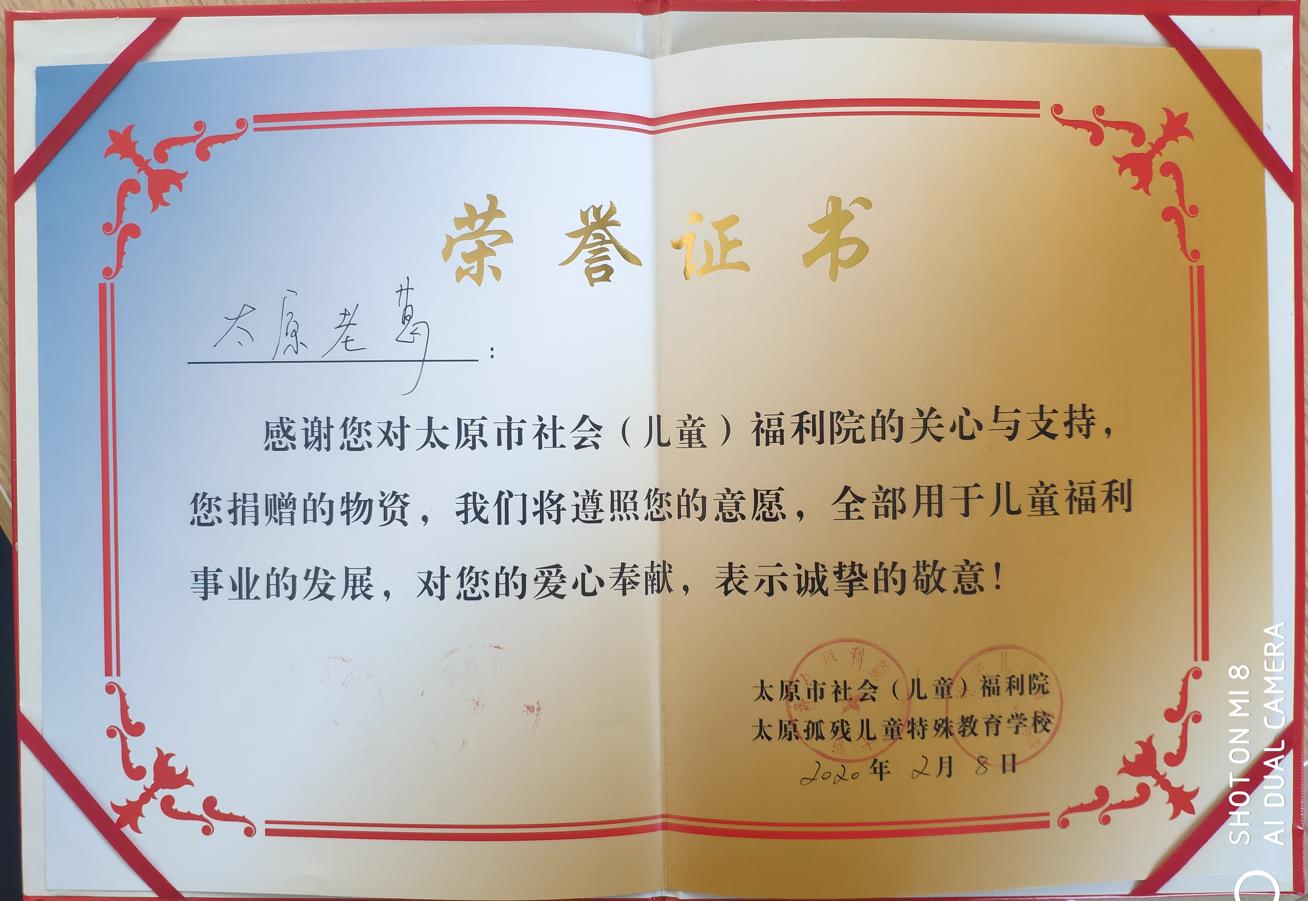 荣誉证书
太原老葛：
感谢您对太原市社会（儿童）福利院的关心与支持，
您捐赠的物资，我们将遵照您的意愿，全部用于儿童福利
事业的发展，对您的爱心奉献，表示诚挚的敬意！
太原市社会（儿童）福利院
太原孤残儿童特殊教育学校
2020年2月8日
SHOT ON MI 8
AI DUAL CAMERA